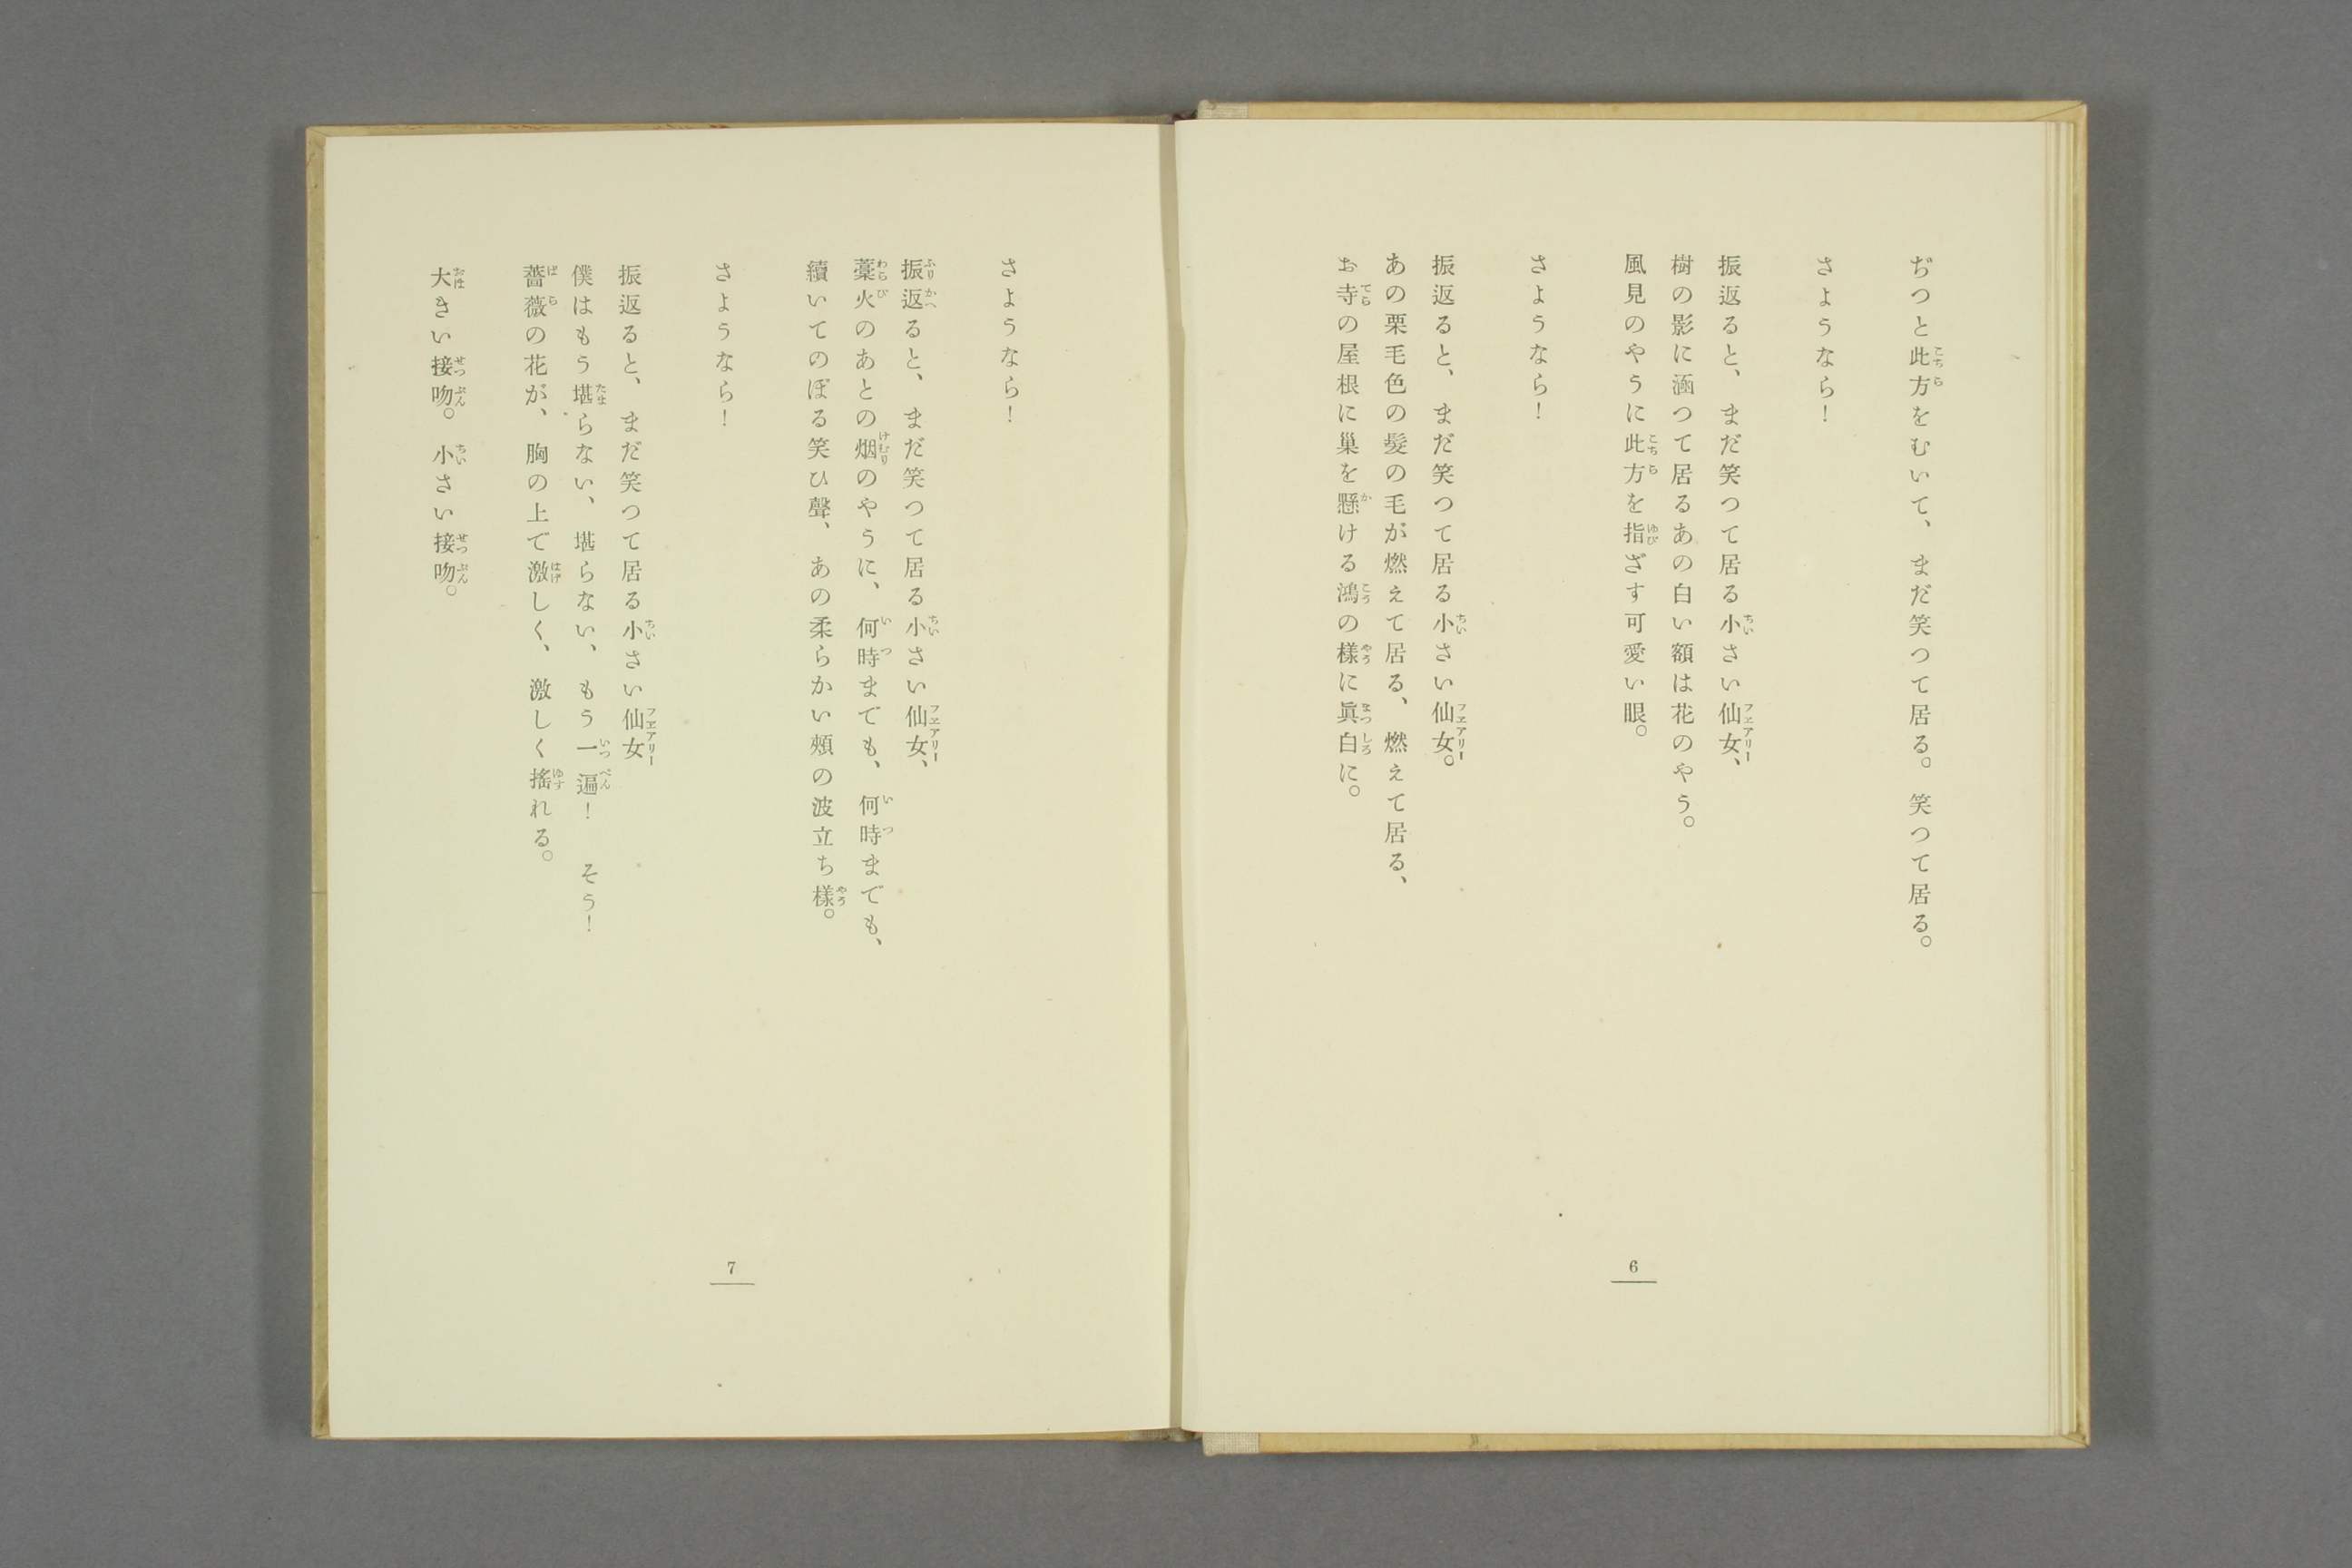 ぢつと此方をむいて、まだ笑つて居る。笑つて居る。
さようなら！
振返ると、まだ笑つて居る小さい仙女、
樹の影に涵つて居るあの白い額は花のやう。
風見のやうに此方を指ざす可愛い眼。
さようなら！
振返ると、まだ笑つて居る小さい仙女。
あの栗毛色の髮の毛が燃えて居る、燃えて居る、
お寺の屋根に巣を懸ける鴻の樣に眞白に。
6
さようなら！
振返ると、まだ笑つて居る小さい仙女、
藁火のあとの烟のやうに、何時までも、何時までも、
續いてのぼる笑ひ聲、あの柔らかい頰の波立ち樣。
さようなら！
振返ると、まだ笑つて居る小さい仙女
僕はもう堪らない、堪らない、もう一遍！　そう！
薔薇の花が、胸の上で激しく、激しく搖れる。
大きい接吻。小さい接吻。
7